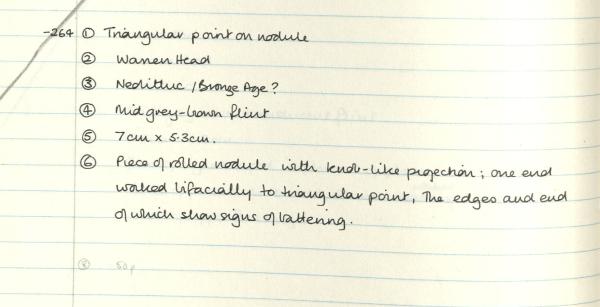 -264 ① Triangular point on nodule
② Warren Head
③ Neolithic / Bronze Age?
④ Mid grey-brown flint
⑤ 7cm x 5.3cm.
⑥ Piece of rolled nodule with knob-like projection; one end
worked bifacially to triangular point, The edges and end
of which show signs of battering.
⑧ 50p